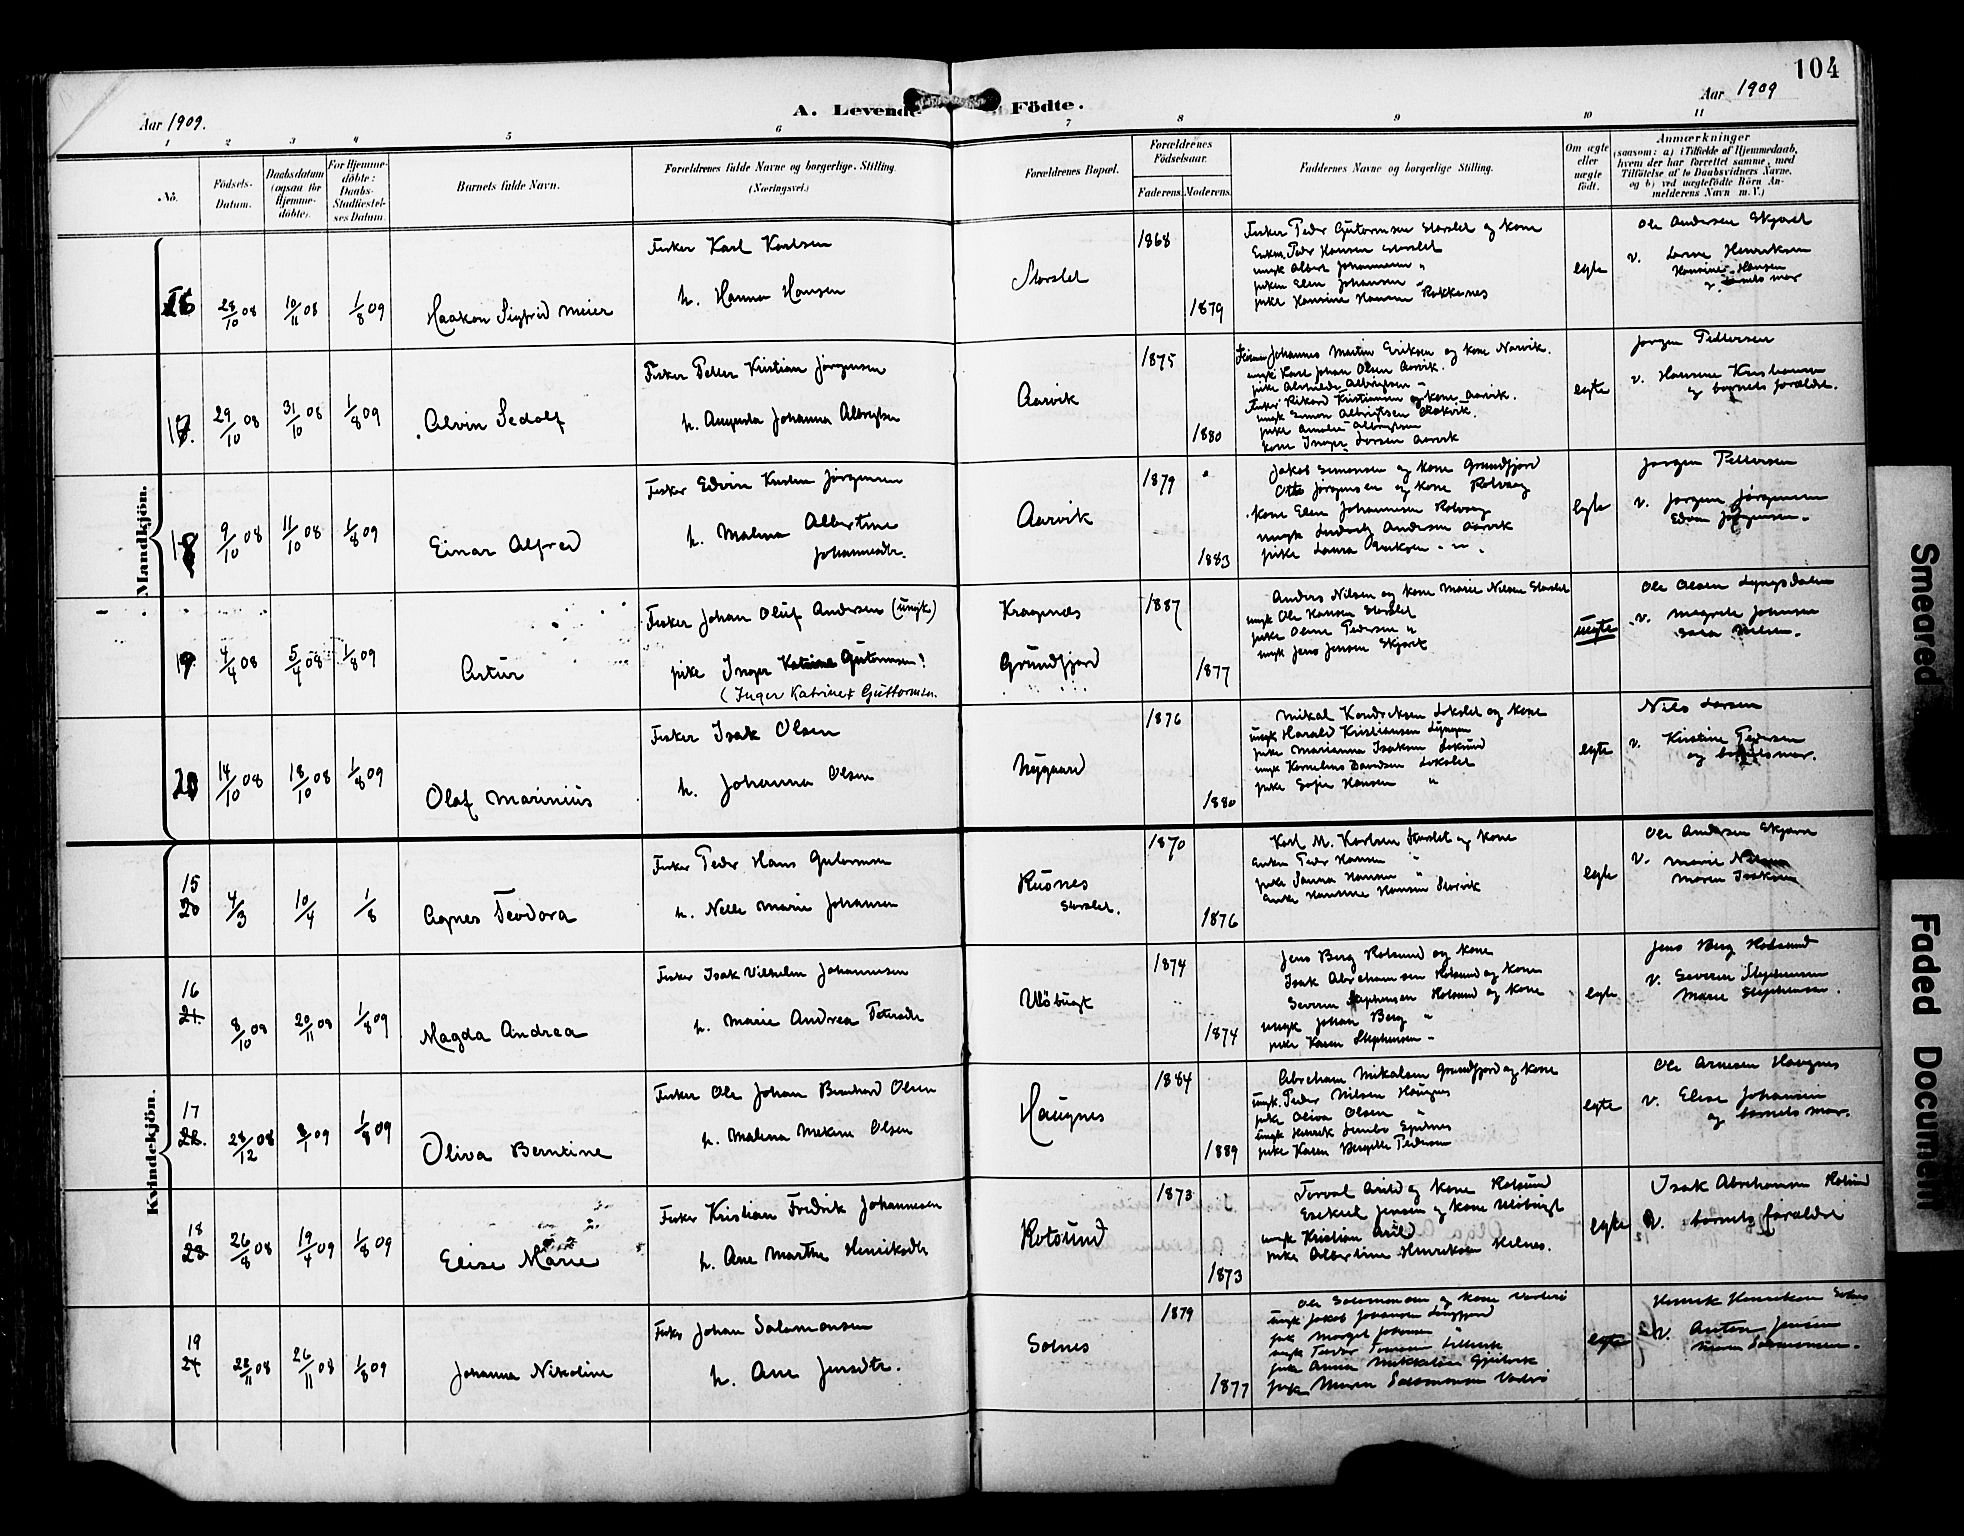 104
Aar 1909.
A. Levende Födte.
Aar 1909
1 2 3 4 5 6 7 8 9 10 11
No.
Födsels-Datum.
Daabsdatum (ogsaa for Hjemme-döbte).
For Hjemme-döbte: Daabs-Stadfæstel-ses Datum.
Barnets fulde Navn.
Forældrenes fulde Navne og borgerlige Stilling.
(Næringsvei.)
Forældrenes Bopæl.
Forældrenes Födselsaar.
Faderens. Moderens.
Faddernes Navne og borgerlige Stilling.
Om ægte eller uægte født.
Anmærkninger
(saasom: a) i Tilfælde af Hjemmedaab, hvem der har forrettet samme, med Tilföielse af to Daabsvidners Navne, og b) ved uægtefödte Börn An-melderens Navn m. V.)
Mandkjön.
16 28/10 08 10/11 08 1/8 09 Haakon Sigfred Meier
Fisker Karl Karlsen
h. Hanna Hansen
Storslet
1868
1879
Fisker Peder Gutormsen Storslet og kone
Enkem. Peder Hansen Storslet
ungk Albert Johannesen "
piken Elen Johansen "
pike Hansine Hansen Rakkenes
egte
Ole Andersen Skjæret
v. Lorna Henriksen
Hansine Hansen
17. 29/10 08 31/10 08 1/8 09 Alvin Sedolf
Fisker Petter Kristian Jörgensen
h. Augusta Johanna Albrigtsen
Aarvik
1875
1880
Johannes Martin Eriksen og kone Narvik.
ungk Karl Johan Olsen Aarvik.
Fisker Rikard Kristiansen og kone Aarvik.
ungk Simon Albrigtsen
pike Amalie Albrigtsen
kone Inger Larsen Aarvik
egte
Jørgen Pettersen
v. Hansine Kristiansen
og barnets forældre.
18 9/10 08 11/10 08 1/8 09 Einar Alfred
Fisker Edvin Kristen Jörgensen
h. Malena Albertine
Johannesdtr.
Aarvik
1879
1883
Jakob Simonsen og kone Grundfjord
Otto Jörgensen og kone Rotvaag
kone Elen Johannesen Rotvaag
ungk Ludvig Andersen Aarvik
pike Laura Eriksen - " -
egte
Jørgen Pettersen
v. Jørgen Jørgensen
Edvin Jørgensen.
19 4/4 08 5/4 08 1/8 09 Artur
Fisker Johan Oluf Andersen (ungk)
pike Inger Katrine Gutormsen!
(Inger Katrine Guttormsen.
Kraagenæs
Grundfjord
1887
1877
Anders Nilsen og kone Marie Nilsen Storslet
ungk Ole Hansen Storslet
pike Oline Pedersen "
ungk Jens Jensen Skjæret
uegte
Ole Olsen Lyngsdalen
v. Magrete Johansen
Sara Nilsen.
20 14/10 08 18/10 08 1/8 09 Olaf Marinius
Fisker Isak Olsen
h. Johanna Olsen
Nygaard
1876
1880
Mikal Kondriksen Lokslet og kone
ungk Harald Kristiansen Lyngen
pike Marianna Isaksen
ungk Kornelius Davidsen Lokslet
pike Sofie Hansen "
egte
Nils Larsen
v. Kirstine Pedersen
og barnets mor.
Kvindekjön.
15 20 4/3 10/4 1/8 Agnes Teodora
Fisker Peder Hans Gutormsen
h. Nelle Marie Johansen
Rusnes
Storslet.
1870
1876
Karl M. Karlsen Storslet og kone
Peder Hansen "
pike Sanna Hansen "
Hansine Hansen Storvik
egte
Ole Andersen Skjæret
v. Marie Nilsen
Maren Isaksen
16 21. 8/10 08 20/11 08 1/8 09 Magda Andrea
Fisker Isak Vilhelm Johannesen
h. Marie Andrea Petersdtr
Uløbugt
1874
1874
Jens Berg Rotsund og kone
Isak Abrahamsen Rotsund og kone
Severin Stephensen Rotsund og kone
ungk Johan Berg "
pike Karen Stephensen "
egte
Jens Berg Rotsund
v. Severin Stephensen
Marie Stephensen.
17 22. 28/12 08 3/1 09 1/8 09 Oliva Berntine
Fisker Ole Johan Bernhard Olsen
h. Malena Mekine Olsen
Haugnes
1884
1889
Abraham Mikalsen Grundfjord og kone
ungk. Peder Nilsen Haugnes
pike Oliva Olsen "
pike Karen Bergitte Pedersen
egte
Ole Arnesen Haugnes
v. Elise Johansen
og barnets mor.
18 23 26/8 08 19/4 09 1/8 09 Elise Marie
Fisker Kristian Fredrik Johannesen
h. Ane Marthe Henriksdtr
Rotsund
1873
1873
Torval Arild og kone Rotsund
Esekiel Jensen og kone Uløbugt
ungk Kristian Arild
pike Albertine Henriksen
egte
Isak Abrahamsen Rotsund
v. barnets forældre
19 24 22/11 08 26/11 08 1/8 09 Johanna Nikoline
Fisker Johan Salamonsen
h. Ane Jensdtr.
Solnes
1879
1877
Ole Salamonsen og kone
ungk Jakob Johansen
pike Margit Johansen
pike Anna Mikkelsen
pike Maren Salamonsen
egte
Henrik Henriksen Solnes
v. Anton Jensen
Maren Salamonsen.
Smeared
Faded Document